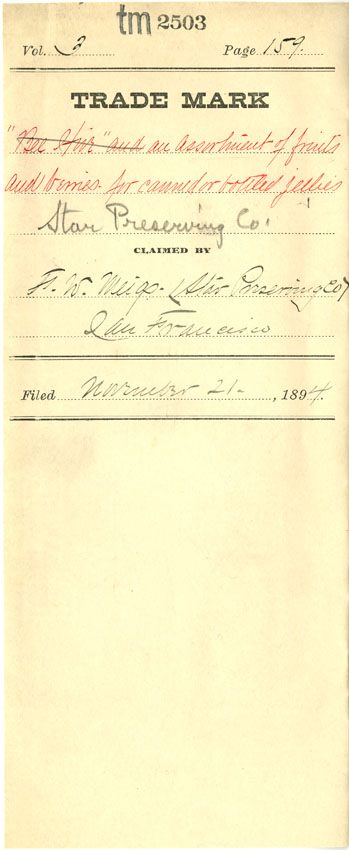 tm 2503
Vol. 3 Page 159.
TRADE MARK
"Bee Hive" and an assortment of fruits
and berries for canned or bottled jellies
Star Preserving Co.
CLAIMED BY
F. W. Meigs (Star Preserving Co)
San Francisco
Filed November 21- , 1894.